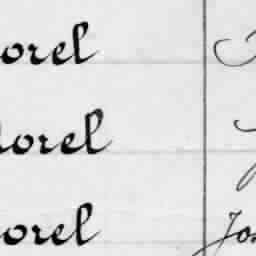 orel
orel
orel Jos